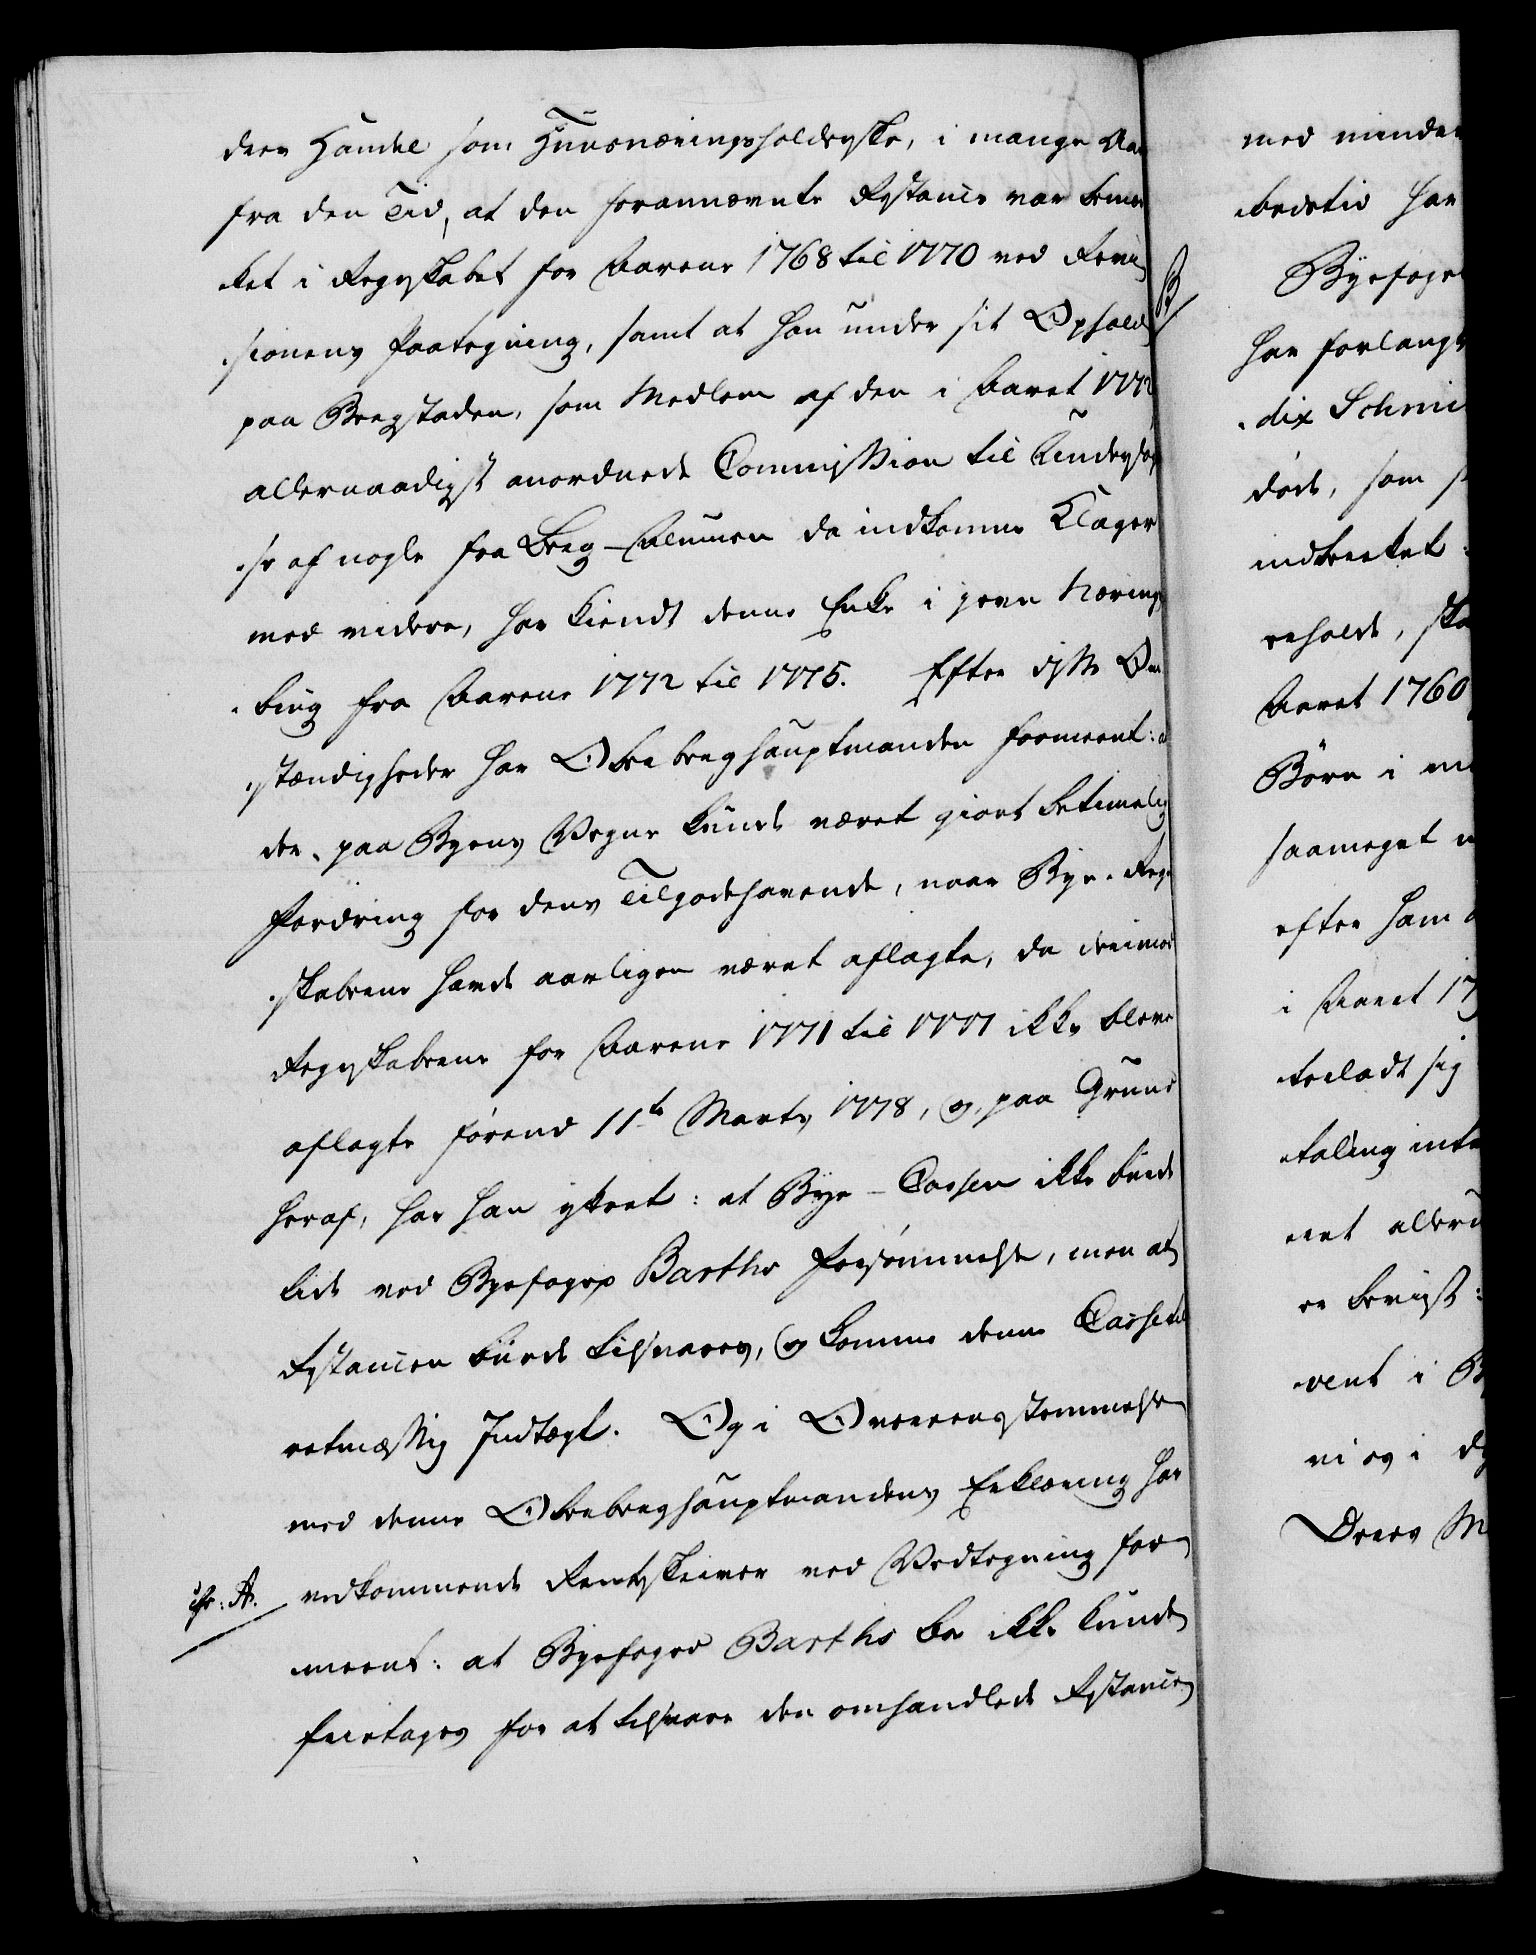 dens Handel som Huusnæringsholderske, i mange Aar
fra den Tid, at den forannævnte Restance var bemer¬
ket i Regnskabet for Aarene 1768 til 1770 ved Revi¬
sionens Paategning, samt at han under sit Ophold
paa Bergstaden, som Medlem af den i Aaret 1772
allernaadigst anordnede Commission til Undersøgel¬
se af nogle fra Berg-Almuen da indkomne Klager
med videre, har kiendt denne Enke i god Nærings
brug fra Aarene 1772 til 1775. Efter disse Om¬
stændigheder har Oberberghauptmanden formeent: at
der paa Byens Vegne kunde været giort betimelig
Fordring for dens Tilgodehavende, naar Bye-Regn¬
skaberne havde aarligen været aflagte, da derimod
Regnskaberne for Aarene 1771 til 1777 ikke bleve
aflagte førend 11te Marts 1778, og, paa Grund
heraf, har han yttret: at Bye-Cassen ikke burde
lide ved Byefoged Barths Forsømmelse, men at
Restancen burde tilsvares, og komme denne Casse til
retmæssig Indtægt. Og i Overeensstemmelse
med denne Oberberghauptmandens Erklæring har
vedkommende Rentskriver ved Vedtegning for¬
meent: at Byefoged Barths Bo ikke kunde
fritages for at tilsvare den omhandlede Restance
cfr: A.
B
med mindre
bedstid har
Byefoged
har forlangt
dix Schmi
døde, som
indberettet
eholdt, ska
Aaret 1760
Børn i
saameget
efter ham
i Aaret 17
forladt sig
taling int
eret aller
er bevist:
vent i B
vi og i
Deres M